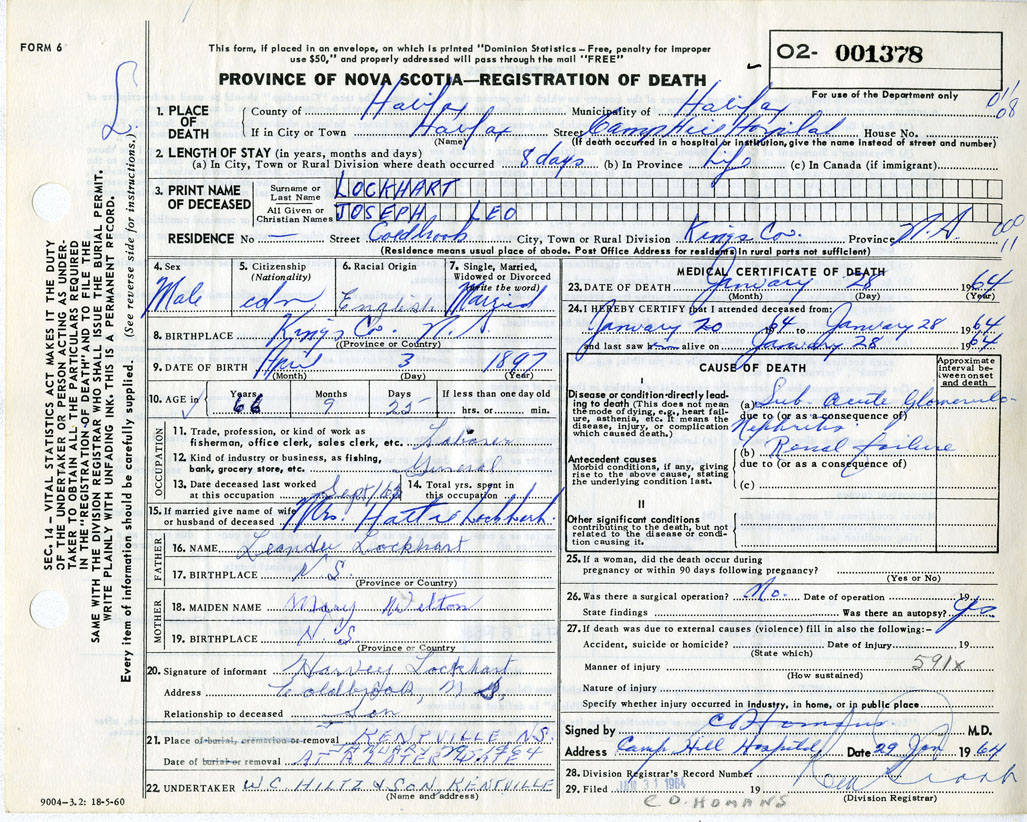 FORM 6
This form, if placed in an envelope, on which is printed "Dominion Statistics—Free, penalty for improper
use $50," and properly addressed will pass through the mail "FREE"
PROVINCE OF NOVA SCOTIA—REGISTRATION OF DEATH
O2- 001378
For use of the Department only
1. PLACE OF DEATH
County of Halifax Municipality of Halifax
If in City or Town Halifax Street Camp Hill Hospital House No.
(Name) (If death occurred in a hospital or institution, give the name instead of street and number)
2. LENGTH OF STAY (in years, months and days)
(a) In City, Town or Rural Division where death occurred 8 days (b) In Province Life (c) In Canada (if immigrant)
3. PRINT NAME OF DECEASED
Surname or Last Name LOCKHART
All Given or Christian Names JOSEPH LEO
RESIDENCE No — Street Coldbrook City, Town or Rural Division Kings Co. Province N.S.
(Residence means usual place of abode. Post Office Address for residents in rural parts not sufficient)
4. Sex Male
5. Citizenship (Nationality) cdn
6. Racial Origin English
7. Single, Married, Widowed or Divorced (write the word) Married
8. BIRTHPLACE Kings Co. N.S.
(Province or Country)
9. DATE OF BIRTH April 3 1897
(Month) (Day) (Year)
10. AGE in Years 66 Months 9 Days 25 If less than one day old hrs. or min.
OCCUPATION
11. Trade, profession, or kind of work as fisherman, office clerk, sales clerk, etc. Laborer
12. Kind of industry or business, as fishing, bank, grocery store, etc. General
13. Date deceased last worked at this occupation Sept/63
14. Total yrs. spent in this occupation
15. If married give name of wife or husband of deceased Mrs. Hattie Lockhart
FATHER
16. NAME Leander Lockhart
17. BIRTHPLACE N.S.
(Province or Country)
MOTHER
18. MAIDEN NAME Mary
19. BIRTHPLACE N.S.
(Province or Country)
20. Signature of informant Harvey Lockhart
Address Coldbrook, N.S.
Relationship to deceased Son
21. Place of burial, cremation or removal KENTVILLE N.S.
JANUARY 29 - 1964
Date of burial or removal AT A LATER DATE
22. UNDERTAKER W C HILTZ & SON, KENTVILLE
(Name and address)
9004-3.2: 18-5-60
MEDICAL CERTIFICATE OF DEATH
23. DATE OF DEATH January 28 1964
(Month) (Day) (Year)
24. I HEREBY CERTIFY that I attended deceased from:
January 20 1964 to January 28 1964
and last saw him alive on January 28 1964
CAUSE OF DEATH
Approximate interval between onset and death
I
Disease or condition directly leading to death (This does not mean the mode of dying, e.g., heart failure, asthenia, etc. It means the disease, injury, or complication which caused death.)
(a) Sub. Acute Glomerulo
due to (or as a consequence of)
Nephritis
Antecedent causes
Morbid conditions, if any, giving rise to the above cause, stating the underlying condition last.
(b) Renal failure
due to (or as a consequence of)
(c)
II
Other significant conditions contributing to the death, but not related to the disease or condition causing it.
25. If a woman, did the death occur during
pregnancy or within 90 days following pregnancy?
(Yes or No)
26. Was there a surgical operation? No. Date of operation 19
State findings Was there an autopsy? Yes
27. If death was due to external causes (violence) fill in also the following:-
Accident, suicide or homicide? Date of injury 19
(State which)
Manner of injury 591x
(How sustained)
Nature of injury
Specify whether injury occurred in industry, in home, or in public place
Signed by C D Homans M.D.
Address Camp Hill Hospital Date 29 Jan 1964
28. Division Registrar's Record Number
29. Filed JAN 31 1964 19
(Division Registrar)
C D. HOMANS
SEC. 14—VITAL STATISTICS ACT MAKES IT THE DUTY
OF THE UNDERTAKER OR PERSON ACTING AS UNDER-
TAKER TO OBTAIN ALL THE PARTICULARS REQUIRED
IN THE "REGISTRATION OF DEATH" AND TO FILE THE
SAME WITH THE DIVISION REGISTRAR WHO SHALL ISSUE THE BURIAL PERMIT.
WRITE PLAINLY WITH UNFADING INK. THIS IS A PERMANENT RECORD.
Every item of information should be carefully supplied. (See reverse side for instructions.)